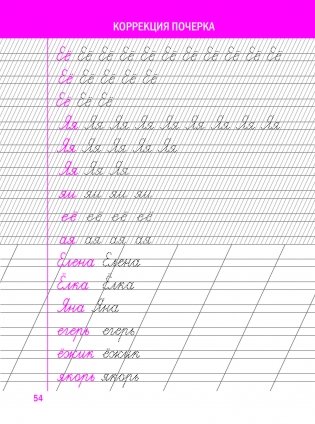 КОРРЕКЦИЯ ПОЧЕРКА
Её Её Её Её Её Её Её Её Её Её
Её Её Её Её Её
Её Её Её
Яя Яя Яя Яя Яя Яя Яя Яя Яя
Яя Яя Яя Яя Яя
Яя Яя Яя
яи яи яи яи
её её её её
ая ая ая ая
Елена Елена
Ёлка Ёлка
Яна Яна
егерь егерь
ёжик ёжик
якорь якорь
54